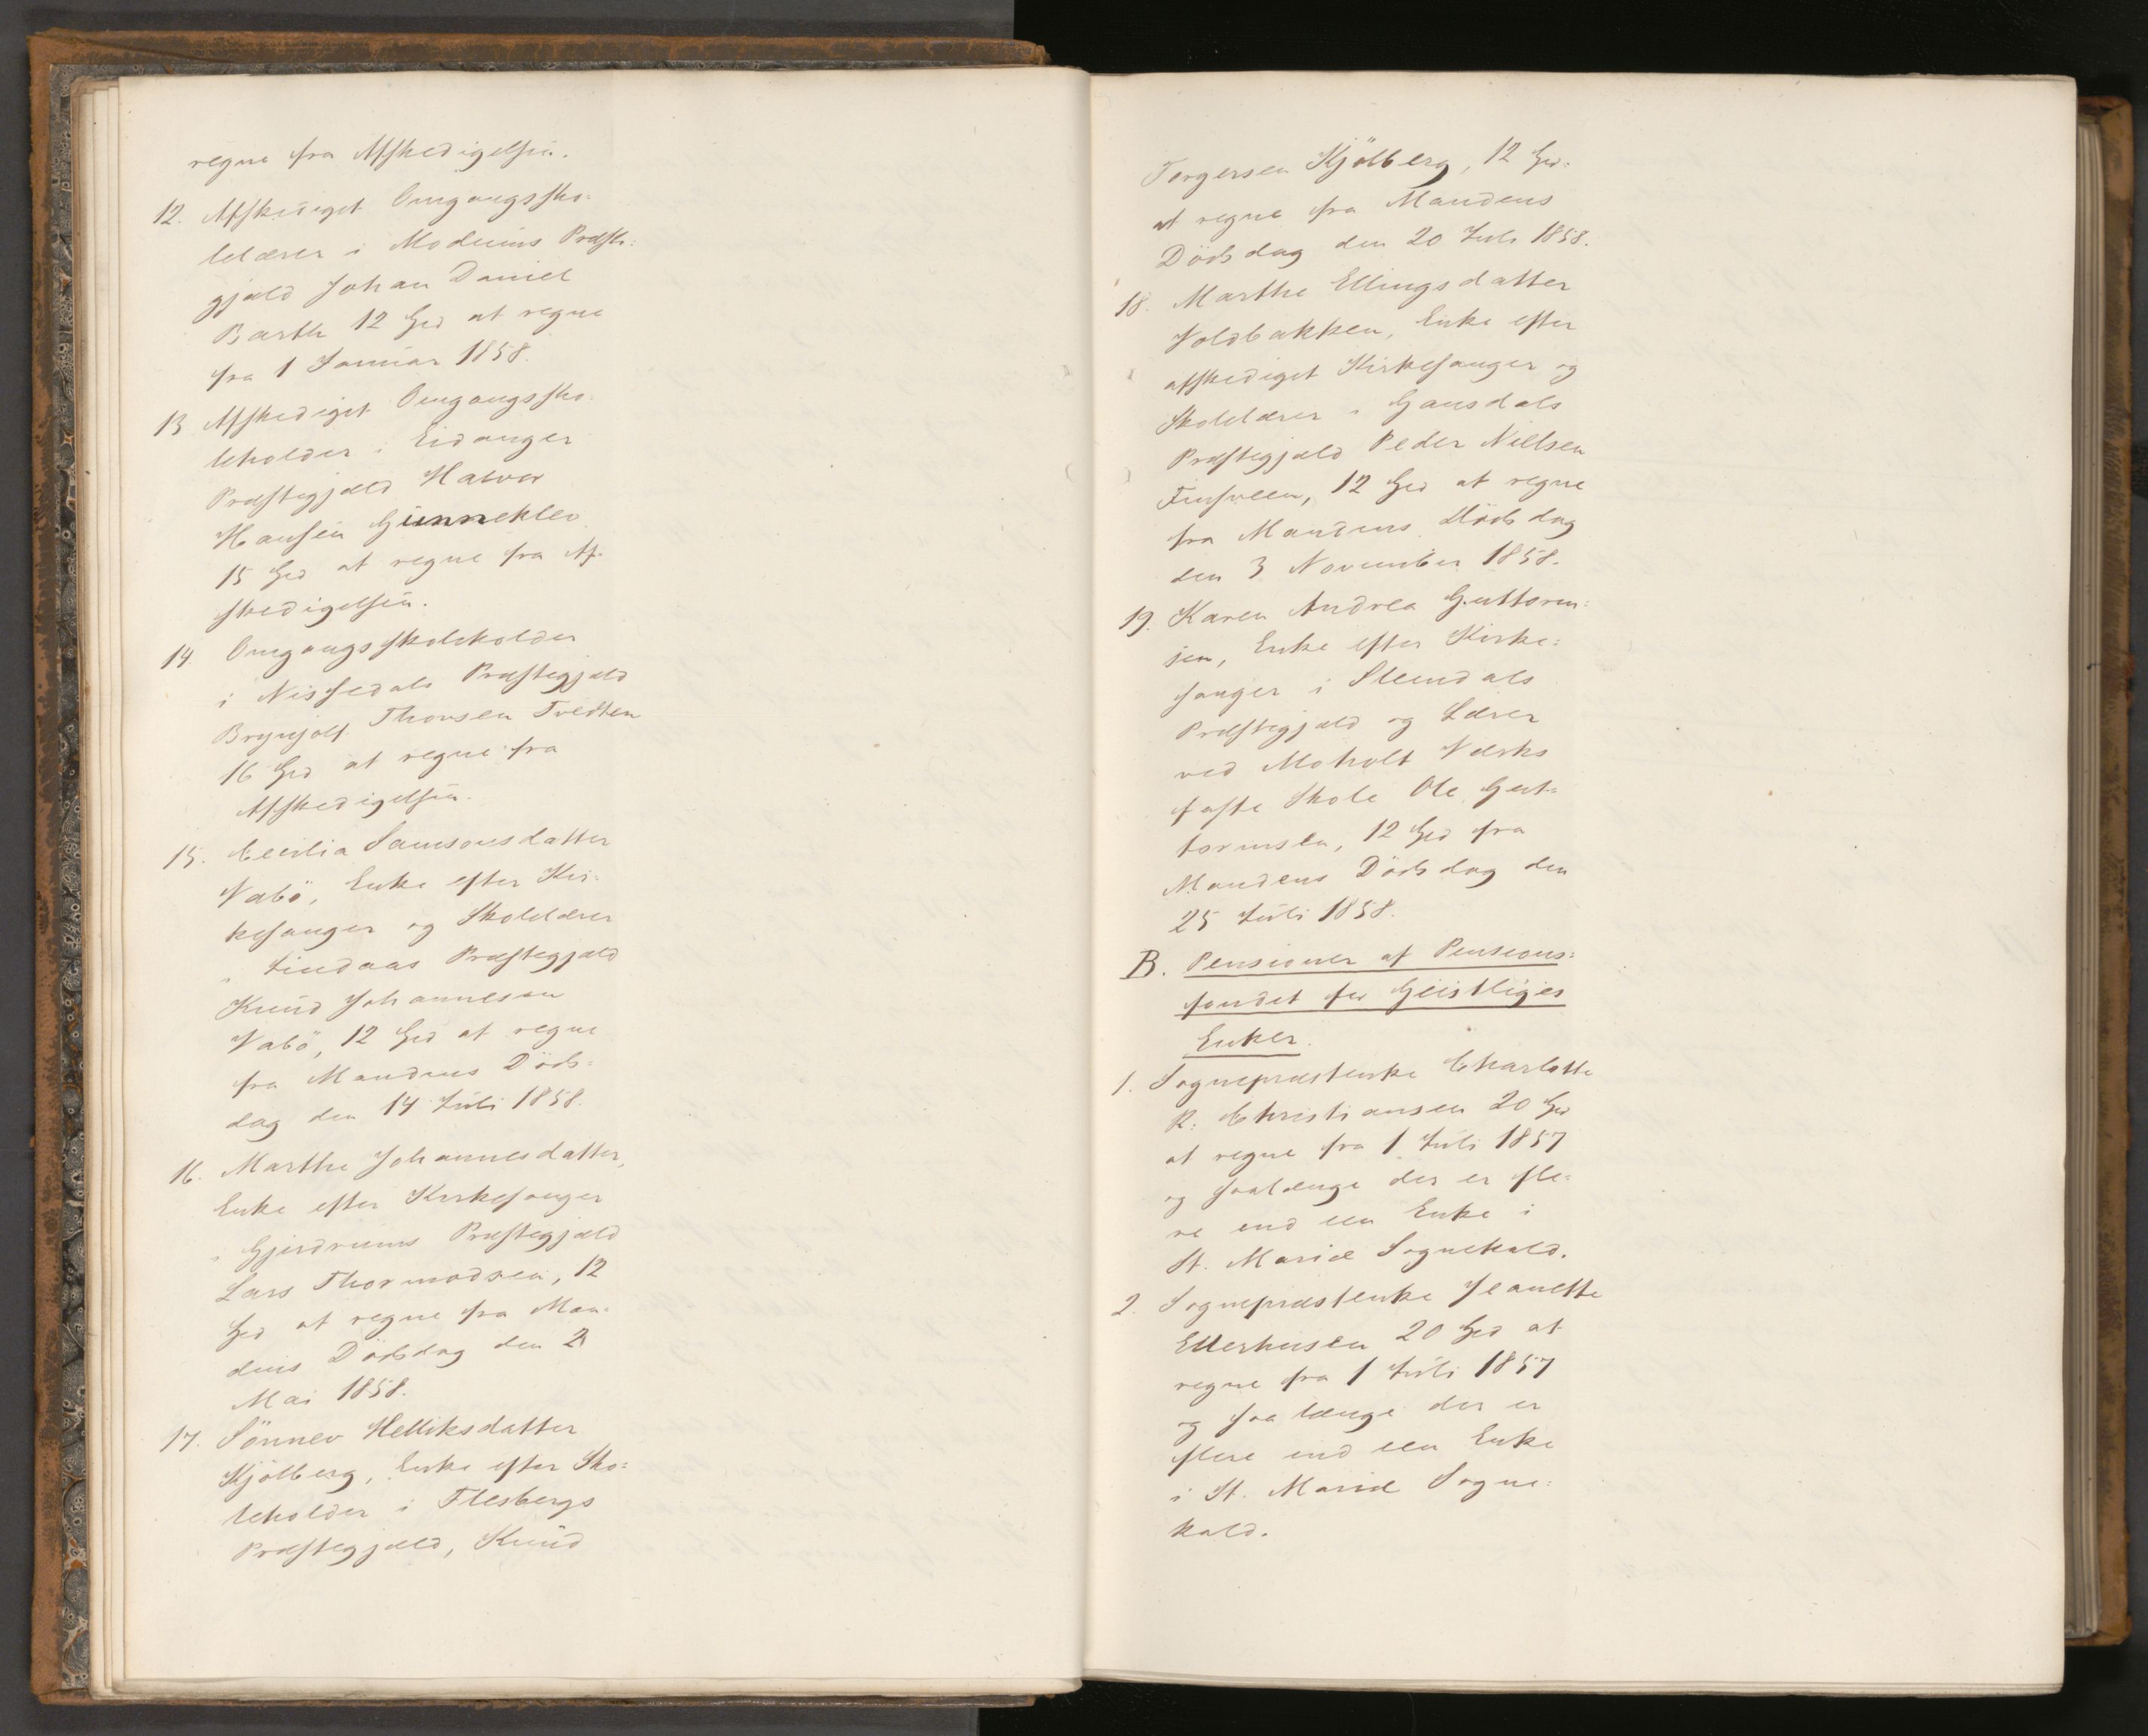 regne fra Afskedigelsen.
12. Afskediget Omgangssko-
lelærer i Modums Præste-
gjæld Johan Daniel
Barth 12 Spd at regne
fra 1 Januar 1858.
13 Afskediget Omgangssko-
leholder i Eidanger
Præstegjæld Halvor
Hansen Gunneklev
15 Spd at regne fra Af-
skedigelsen.
14 Omgangsskoleholder
i Nissedals Præstegjæld
Brynjolf Thorsen Tvedten
16 Spd at regne fra
Afskedigelsen.
15. Cecilia Samsonsdatter
Vabö, Enke efter Kir-
kesanger og Skolelærer
i Lindaas Præstegjæld
Knud Johannesen
Vabö, 12 Spd at regne
fra Mandens Döds-
dag den 14 Juli 1858.
16. Marthe Johannesdatter,
Enke efter Kirkesanger
i Gjerdrums Præstegjæld
Lars Thormodsen, 12
Spd at regne fra Man-
dens Dödsdag den 2
Mai 1858.
17. Sönnev Helliksdatter
Kjölberg, Enke efter Sko-
leholder i Flesbergs
Præstegjæld, Knud
Torgersen Kjölberg, 12 Spd.
at regne fra Mandens
Dödsdag den 20 Juli 1858.
18. Marthe Ellingsdatter
Voldbakken, Enke efter
afskediget Kirkesanger og
Skolelærer i Gausdals
Præstegjæld Peder Nielsen
12 Spd at regne
fra Mandens Dödsdag
den 3 November 1858.
19. Karen Andrea Guttorm-
sen, Enke efter Kirke-
sanger i Slemdals
Præstegjæld og Lærer
ved Moholt Værks
faste Skole Ole Gut-
tormsen, 12 Spd fra
Mandens Dödsdag den
25 Juli 1858.
B. Pensioner af Pensions-
fondet for Geistliges
Enker.
1. Sognepræstenke Charlotte
R. Christiansen 20 Spd
at regne fra 1 Juli 1857
og saalænge der er fle-
re end een Enke i
St. Mariæ Sognekald.
2. Sognepræstenke Jeanette
Ellerhusen 20 Spd at
regne fra 1 Juli 1857
og saa længe der er
flere end een Enke
i St. Mariæ Sogne-
kald.